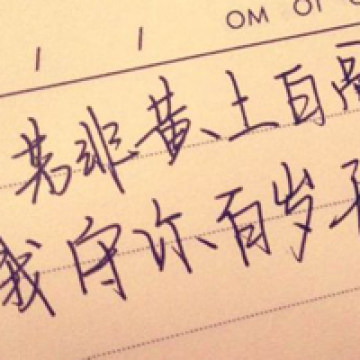 OM OI
若非黄土白骨
我守你百岁无